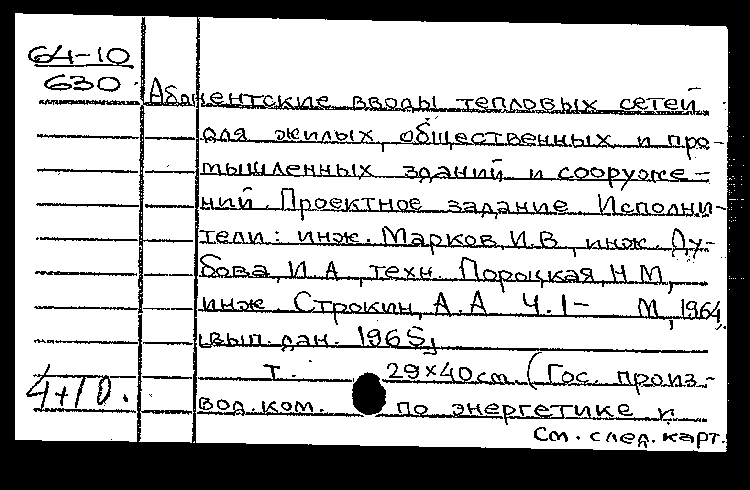 64-10
630
Абонентские вводы тепловых сетей
для жилых, общественных и про-
мышленных зданий и сооруже-
ний. Проектное задание Исполни-
тели: инж. Марков, И.В, инж. Ду-
бова, И.А, техн. Пороцкая, Н.М,
инж Строкин, А.А Ч.1- М, 1964,
[вып. дан. 1965]
т. 29×40см. (Гос. произ-
вод. ком. по энергетике и
4+10.
См. след. карт.